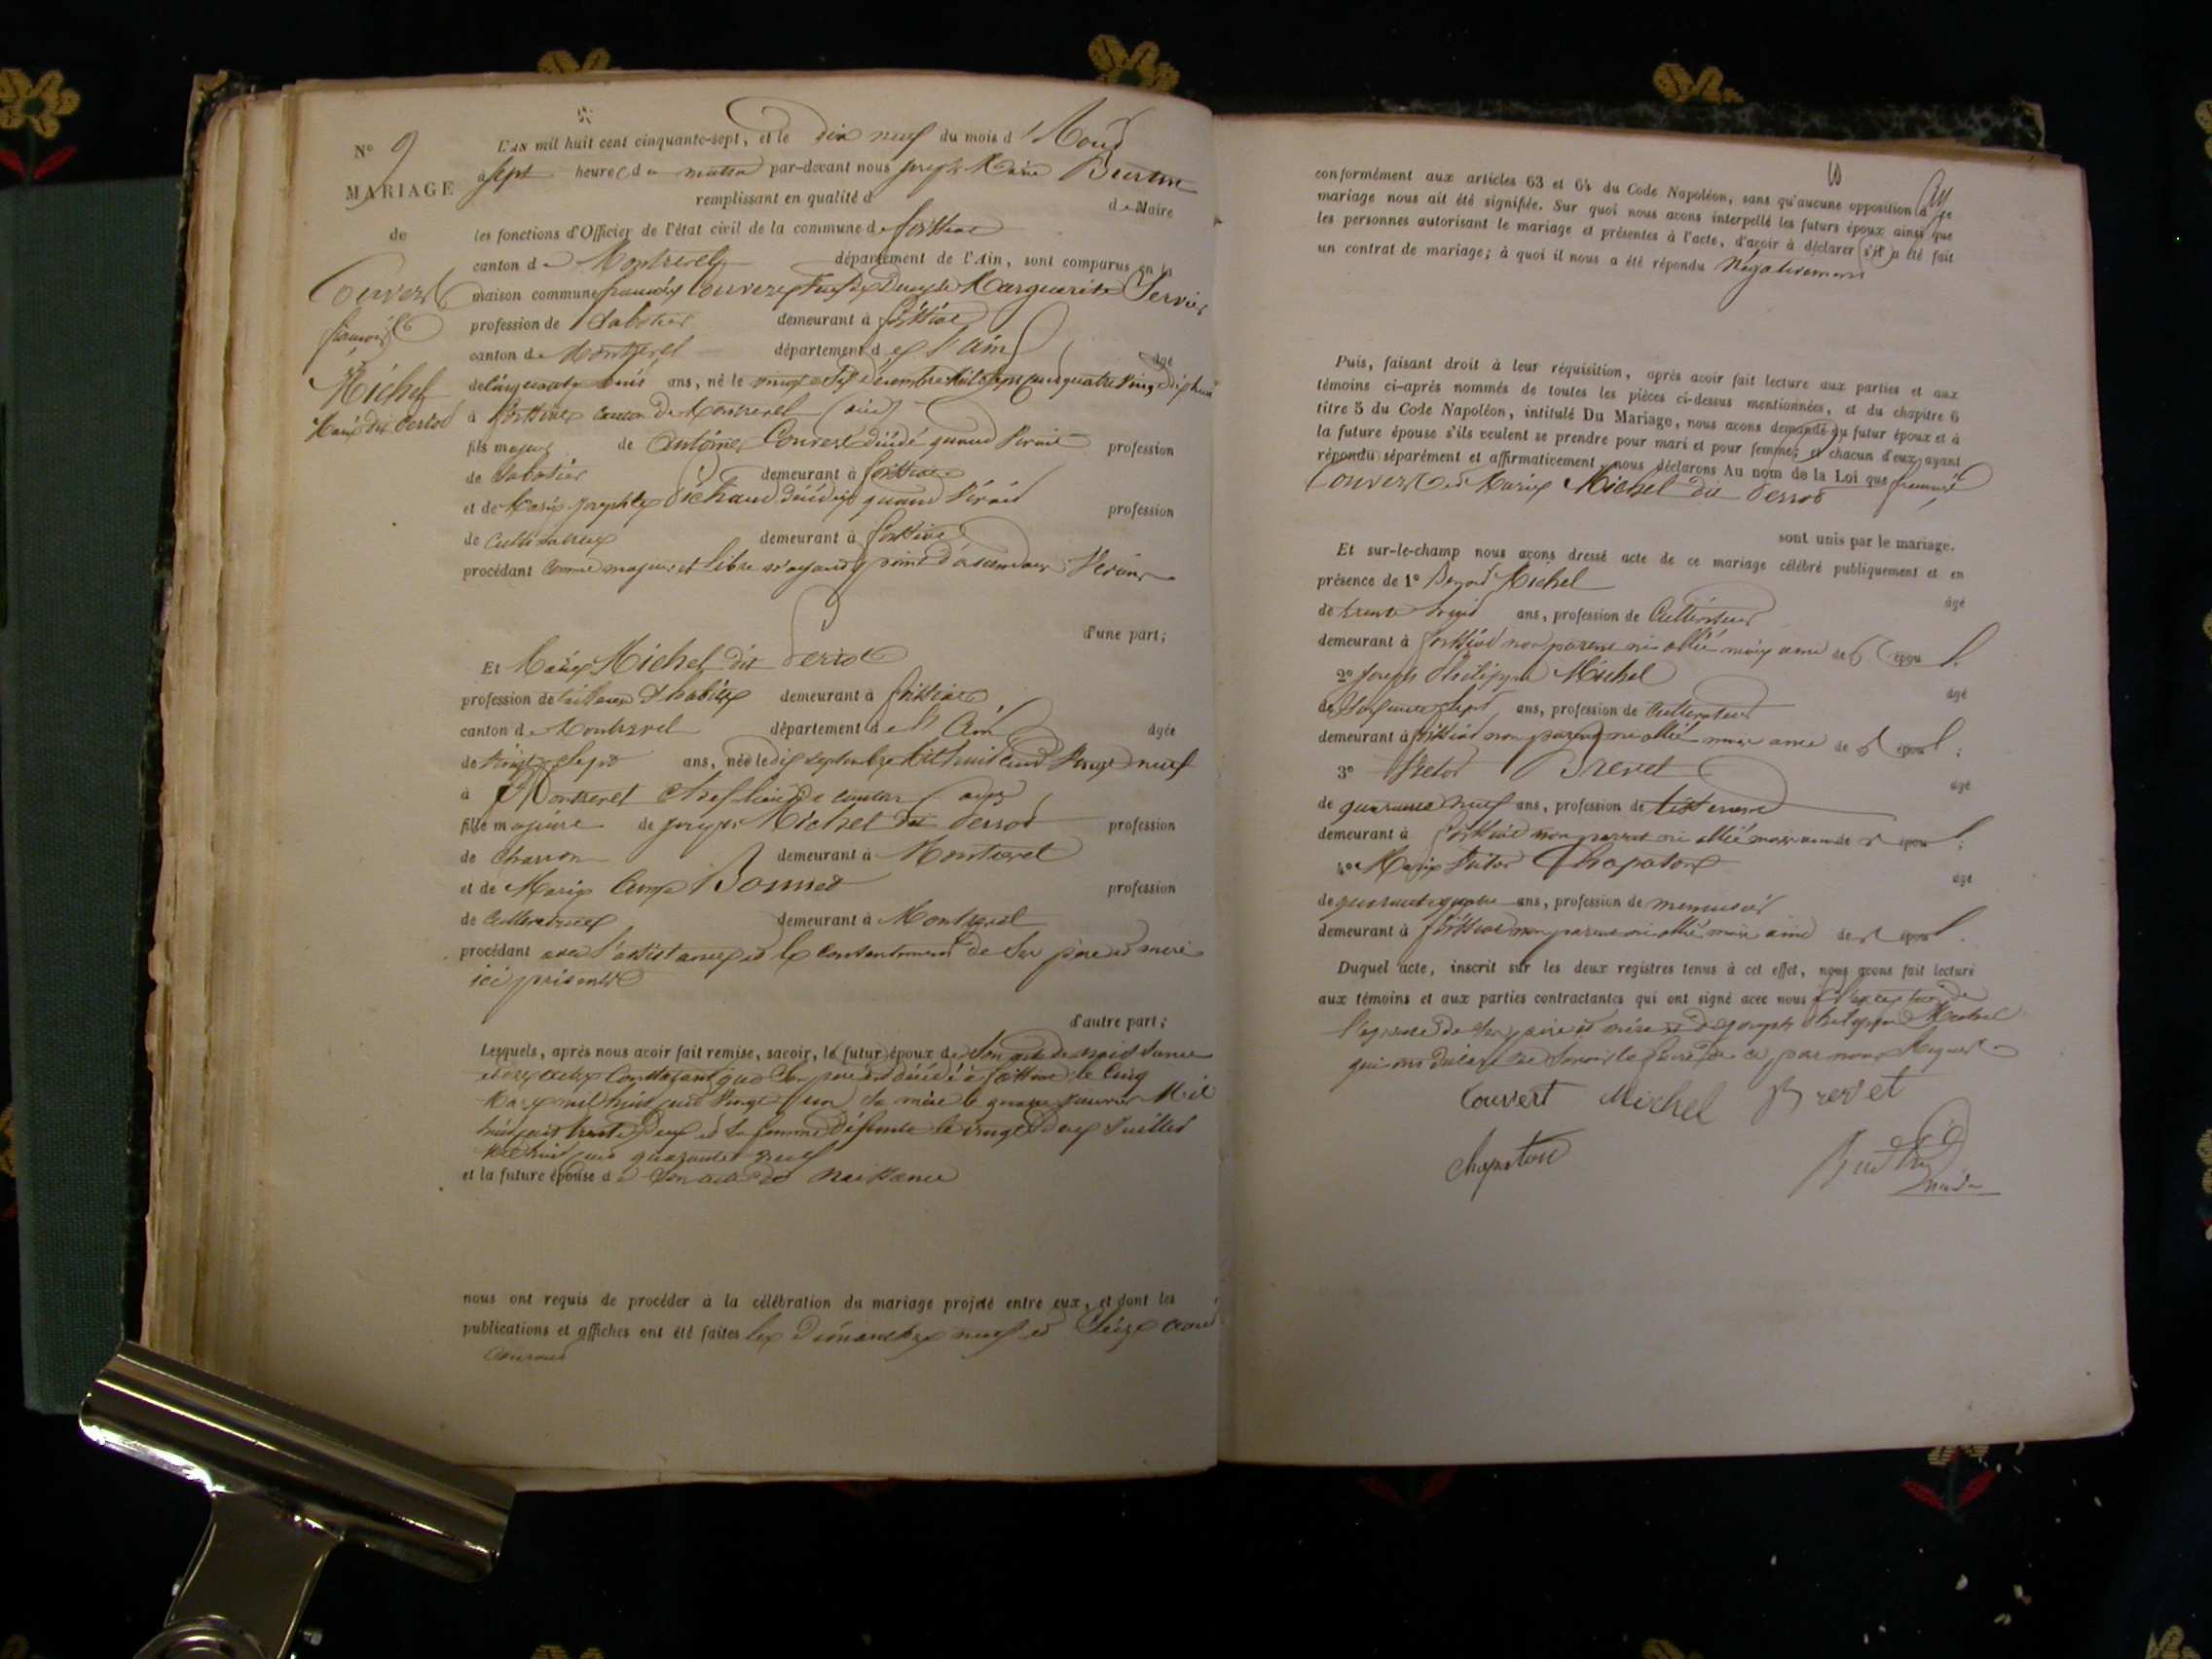 N° 9
MARIAGE
de
Couvert
françois
&
Michel
Marie dit Perrod
L'an mil huit cent cinquante-sept, et le dix neuf du mois d'Aout
à sept heures du matin par-devant nous joseph Marie
remplissant en qualité de Maire
les fonctions d'Officier de l'état civil de la commune de foissiat
canton de Montrevel département de l'Ain, sont comparus en la
maison commune françois Couvert Marguerite
profession de Sabotier demeurant à foissiat
canton de Montrevel département de l'Ain âgé
de cinquante huit ans, né le vingt décembre mil sept cent quatre vingt dix huit
à foissiat canton de Montrevel (ain)
fils majeur de Antoine Couvert décédé quand vivait profession
de Sabotier demeurant à foissiat
et de Marie josephte décédée quand vivait profession
de Cultivatrice demeurant à foissiat
procédant comme majeur et libre n'ayant point d'ascendans
d'une part;
Et Marie Michel dit Perrod
profession de tailleuse d'habits demeurant à foissiat
canton de Montrevel département de l'Ain âgée
de Vingt Sept ans, née le dix septembre mil huit cent Vingt neuf
à Montrevel chef lieu de canton (ain)
fille majeure de joseph Michel dit Perrod profession
de Charron demeurant à Montrevel
et de Marie profession
de Cultivatrice demeurant à Montrevel
procédant avec l'assistance et le consentement de ses père et mère
ici présents
d'autre part;
Lesquels, après nous avoir fait remise, savoir, le futur époux de son acte de naissance
constatant que son père est décédé à foissiat le cinq
Mars mil huit cent vingt un sa mère le quatre janvier Mil
huit cent trente deux et sa femme défunte le vingt deux juillet
mil huit cent quarante neuf
et la future épouse de son acte de naissance
nous ont requis de procéder à la célébration du mariage projeté entre eux, et dont les
publications et affiches ont été faites les dimanches neuf et seize aout
courant
conformément aux articles 63 et 64 du Code Napoléon, sans qu'aucune opposition à ce
mariage nous ait été signifiée. Sur quoi nous avons interpellé les futurs époux ainsi que
les personnes autorisant le mariage et présentes à l'acte, d'avoir à déclarer s'il a été fait
un contrat de mariage; à quoi il nous a été répondu Négativement
Puis, faisant droit à leur réquisition, après avoir fait lecture aux parties et aux
témoins ci-après nommés de toutes les pièces ci-dessus mentionnées, et du chapitre 6
titre 5 du Code Napoléon, intitulé Du Mariage, nous avons demandé au futur époux et à
la future épouse s'ils veulent se prendre pour mari et pour femme; et chacun d'eux ayant
répondu séparément et affirmativement, nous déclarons Au nom de la Loi que françois
Couvert et Marie Michel dit Perrod
sont unis par le mariage.
Et sur-le-champ nous avons dressé acte de ce mariage célébré publiquement et en
présence de 1° Michel
âgé
de trente huit ans, profession de Cultivateur
demeurant à foissiat non parent ni allié mais ami des époux
2° joseph Philippe Michel
âgé
de sept ans, profession de Cultivateur
demeurant à foissiat non parent ni allié mais ami des époux;
3° Victor Brevet
âgé
de quarante neuf ans, profession de tisserand
demeurant à foissiat non parent ni allié mais ami des époux;
4° Chapaton
âgé
de quarante quatre ans, profession de menuisier
demeurant à foissiat non parent ni allié mais ami des époux.
Duquel acte, inscrit sur les deux registres tenus à cet effet, nous avons fait lecture
aux témoins et aux parties contractantes qui ont signé avec nous à l'exception de
l'épouse de ses père et mère et de joseph philippe Michel
qui ont déclaré ne savoir le faire de ce par nous requis
Couvert Michel Brevet
Chapaton